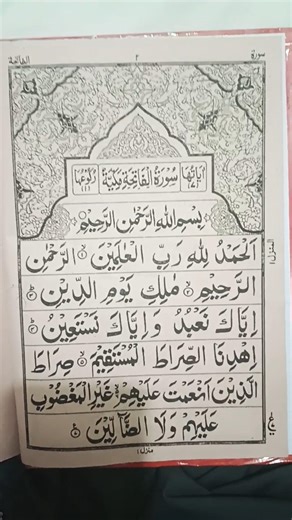 سورة ٢ الفاتحة
اٰیاتها ٧ سُوْرَةُ الْفَاتِحَةِ مَكِّيَّةٌ رکوعها ١
بِسْمِ اللهِ الرَّحْمٰنِ الرَّحِيْمِ
اَلْحَمْدُ لِلّٰهِ رَبِّ الْعٰلَمِيْنَ ۙ١ الرَّحْمٰنِ
الرَّحِيْمِ ۙ٢ مٰلِكِ يَوْمِ الدِّيْنِ ؕ٣
اِيَّاكَ نَعْبُدُ وَاِيَّاكَ نَسْتَعِيْنُ ؕ٤
اِهْدِنَا الصِّرَاطَ الْمُسْتَقِيْمَ ۙ٥ صِرَاطَ
الَّذِيْنَ اَنْعَمْتَ عَلَيْهِمْ ۙ٦ غَيْرِ الْمَغْضُوْبِ
عَلَيْهِمْ وَلَا الضَّآلِّيْنَ ٧
المنزل ١
منزل ١